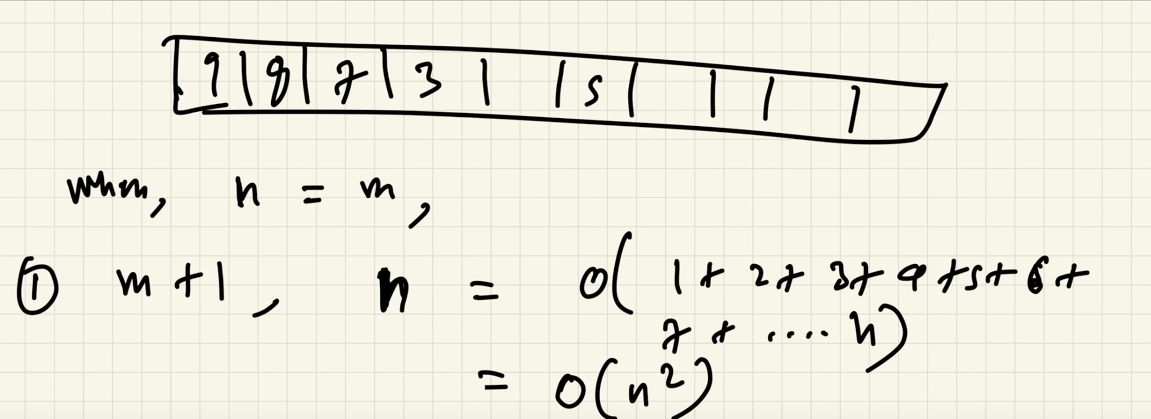 9 | 8 | 7 | 3 | | s | | | |
when, n = m,
① m + 1, n = O( 1 + 2 + 3 + 4 + 5 + 6 +
7 + .... n)
= O(n²)